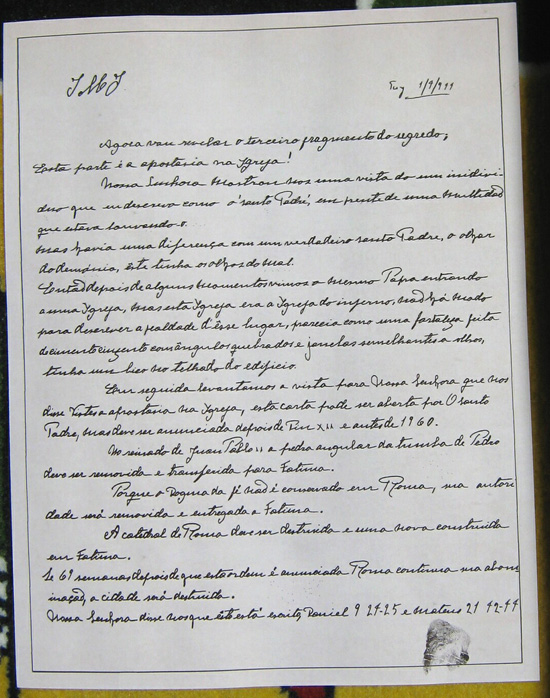 JMJ
Tuy 1/9/944
Agora vou revelar o terceiro fragmento do segredo;
Esta parte é a apostasia na Igreja!
Nossa Senhora mostrou nos uma vista do um individi-
duo que eu descrevo como o 'santo Padre', em frente de uma multidão
que estava louvando-o.
Mas havia uma diferença com um verdadeiro santo Padre, o olhar
do demónio, êste tinha os olhos do mal.
Então depois de alguns momentos vimos o mesmo Papa entrando
a uma Igreja, mas esta Igreja era a Igreja do inferno, não há modo
para descrever a fealdade d'êsse lugar, parecia como uma fortaleza feita
de cimento cinzento com ângulos quebrados e janelas semelhantes a olhos,
tinha um bico no telhado do edificio.
Em seguida levantamos a vista para Nossa Senhora que nos
disse Vistes a apostasia na Igreja, esta carta pode ser aberta por O santo
Padre, mas deve ser anunciada depois de Pio XII e antes de 1960.
No reinado de Juan Pablo II a pedra angular da tumba de Pedro
deve ser removida e transferida para Fatima.
Porque o Dogma da fé não é conservado em Roma, sua autori-
dade será removida e entregada a Fatima.
A catedral de Roma deve ser destruida e uma nova construida
em Fatima.
Se 69 semanas depois de que esta ordem é anunciada Roma continua sua abom
inação, a cidade será destruida.
Nossa Senhora disse nos que êste está escrito, Daniel 9 24-25 e Mateus 21 42-44